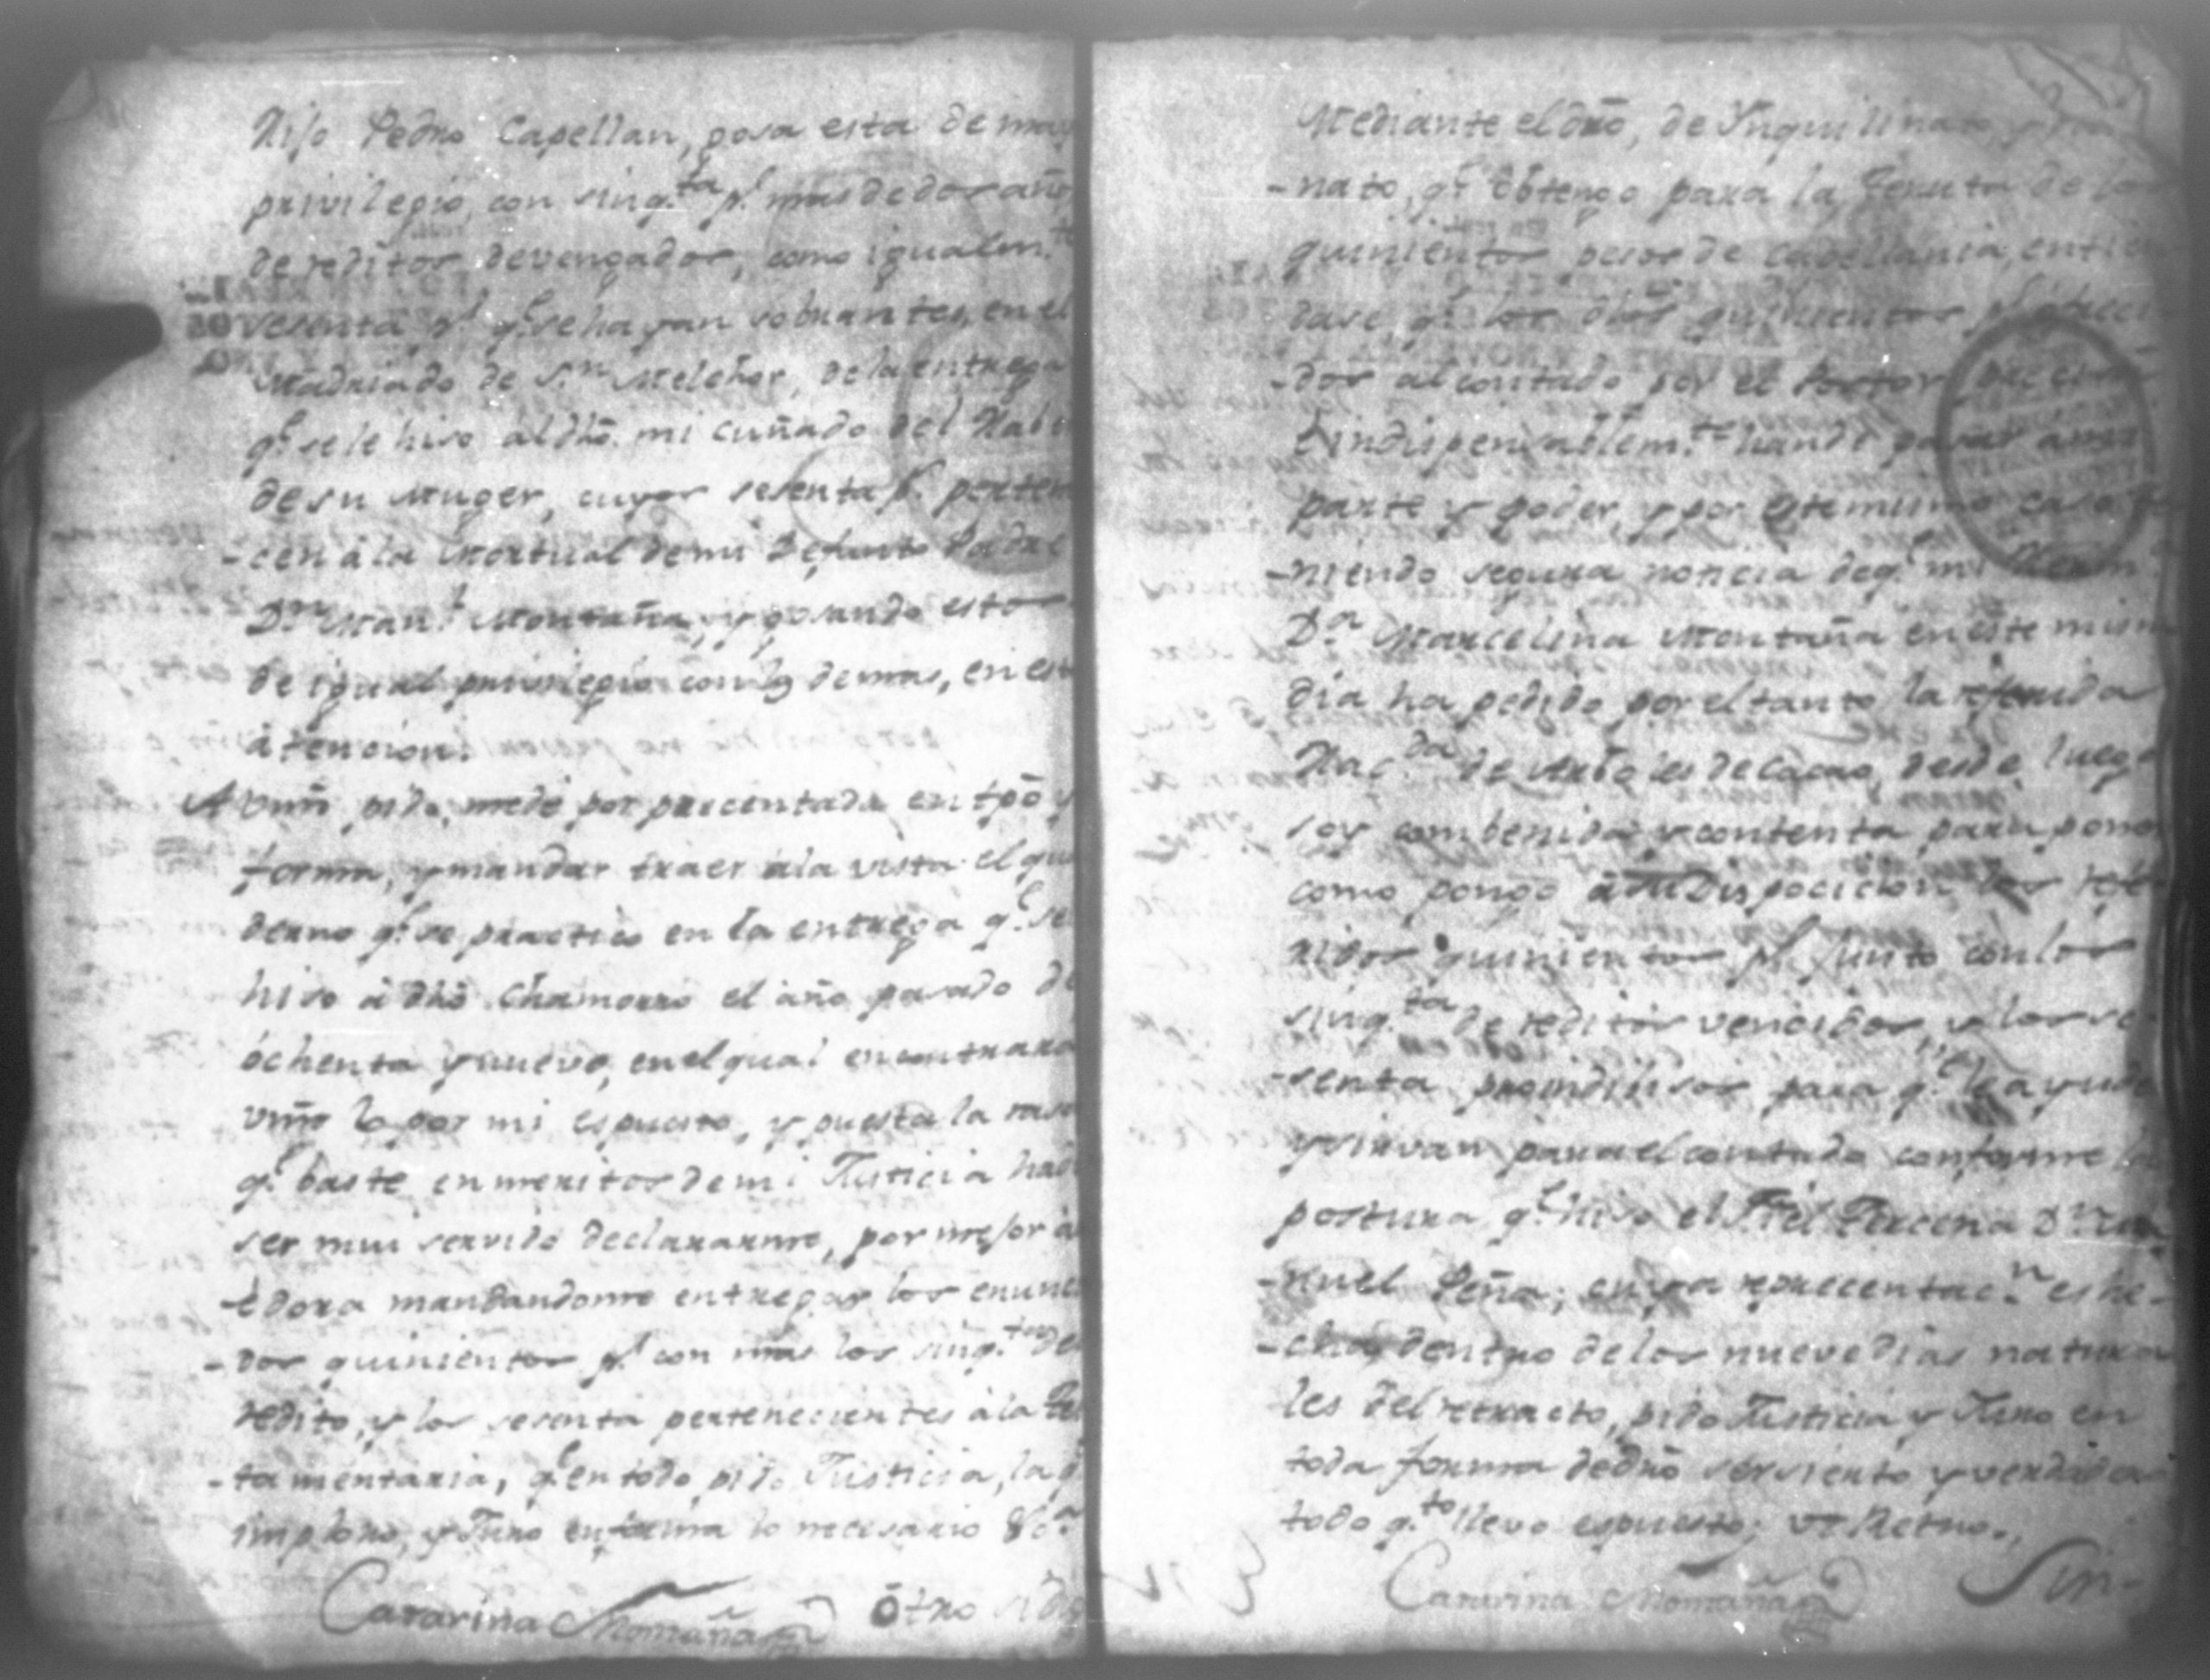 Hijo Pedro Capellan, gosa esta de may
privilegio, con sinq.ta p.s mas de dos años
de reditos devengados, como igualm.te
sesenta p.s q.e se hayan sobrantes, en el
Madriado de S.n Melchor, de la entrega
q.e se le hiso al dho. mi cuñado del Hab
de su Muger, cuyos sesenta p.s perten
-cen á la Mortual de mi Defunto Padre
D.n Man.l Montaña, y gosando estos
de igual privilegio con los demas, en est
átencion.
A Vmd. pido, me dé por precentada en tpõ y
forma, y mandar traer á la vista el qua
derno q.e se practicó en la entrega q.e se
hiso á dhõ Chamorro el año pasado de
óchenta y nueve, en el qual encontrara
Vmd lo por mi espuesto, y puesta la rason
q.e baste en meritos de mi Justicia had
ser mui servido declararme, por mejor a
-edora mandandome entregar los enunci
-dos quinientos p.s con mas los sinq.ta de
redito, y los sesenta pertenecientes á la tes
-tamentaria, q.e en todo pido Justicia, la q.e
imploro, y Juro en forma lo necesario &c.a
Catarina Montaña
Ótro si dig
Mediante el dro, de Ynquilinato, y
-nato, q.e obtengo para la Tenuta de los
quinientos pesos de capellania, entien
dase q.e los dhos quinientos p.s ofreci-
-dos al contado por el Postor,
é indispensablem.te han de parar a mi
parte y poder, y por este mismo caso te
-niendo segura noticia de q.e mi Herm.a
D.a Marcelina Montaña en este mism
dia ha pedido por el tanto la referida
Hac.da de Arboles de Cacao, desde luego
soy combenida y contenta para poner
como pongo á su Disposicion los refe
ridos quinientos p.s junto con los
sinq.ta de reditos vencidos, y los se-
-senta proindivisos para q.e le ayude
y sirvan para el contado conforme la
postura q.e hiso el Fiel Tercena D.n Ma
-nuel Peña; cuya reprecentac.n es he-
-cha dentro de los nueve dias natura
les del retracto, pido Justicia y Juro en
toda forma de dro ser sierto y verdadero
todo q.to llevo espuesto; vt Retro.,
Catarina Montaña
Sin-